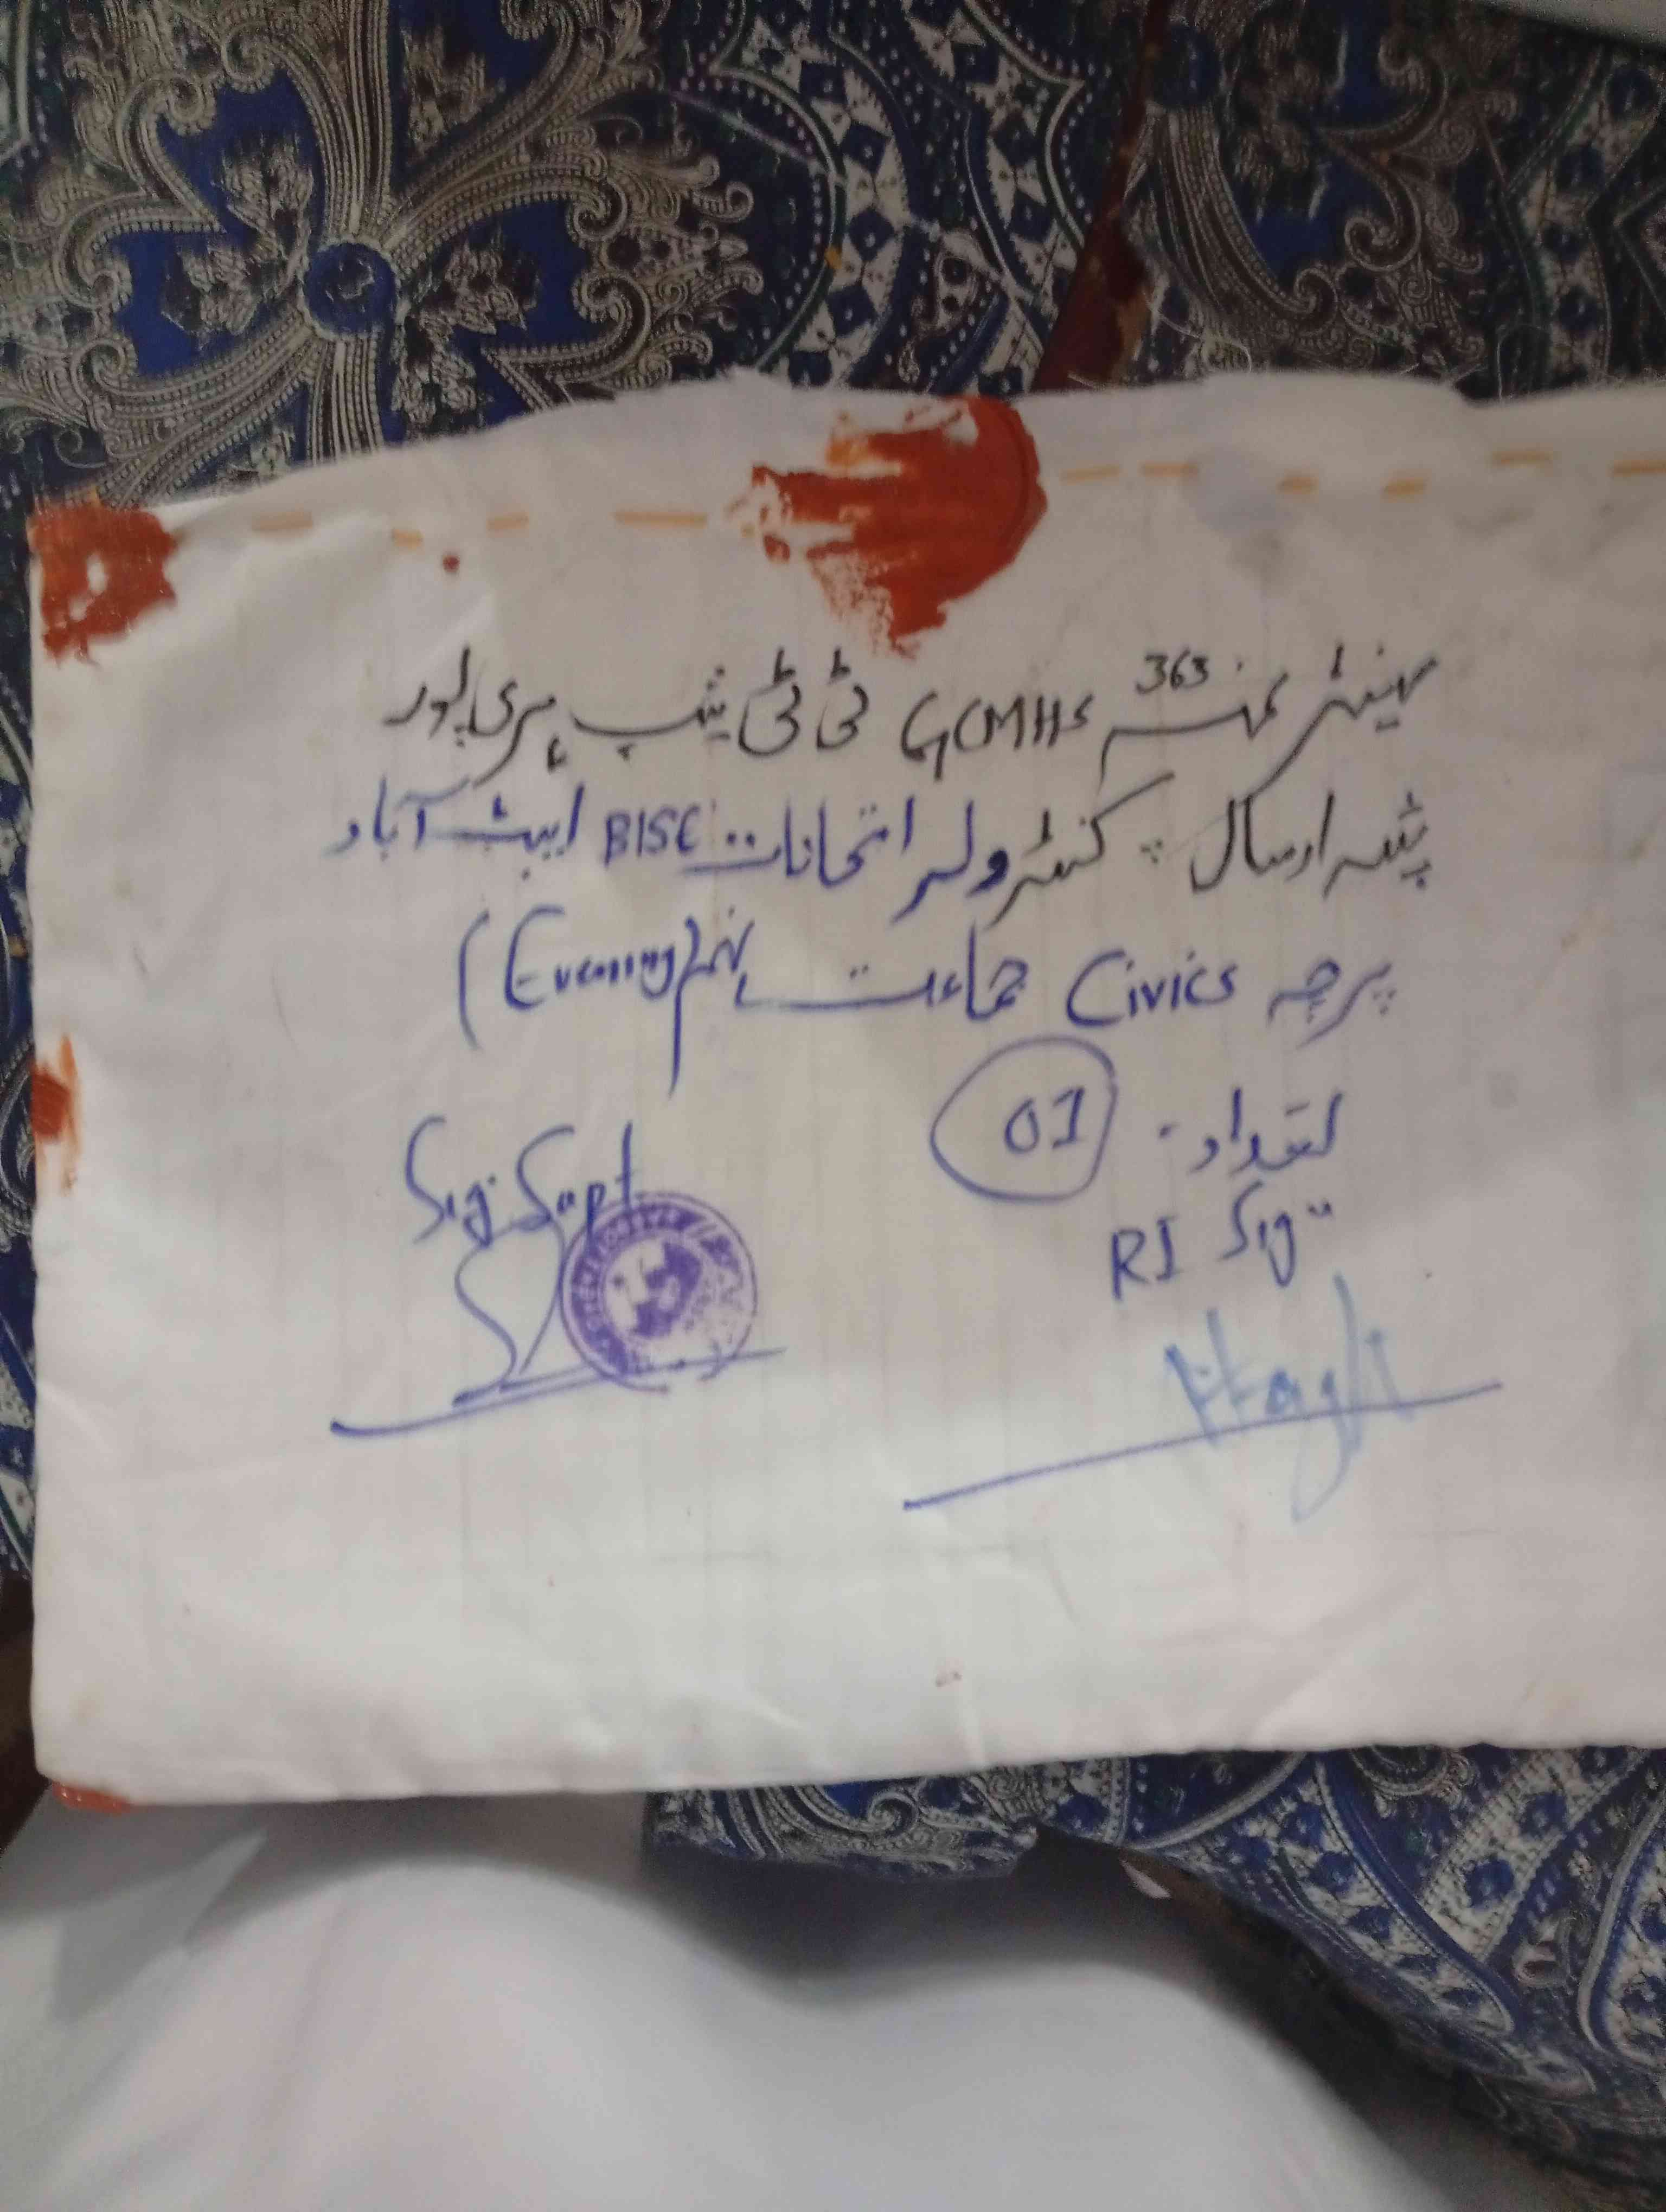 سینٹر نمبر 363 GCMHS ٹی ٹی شپ ہری پور
پتہ ارسال : کنٹرولر امتحانات BISE ایبٹ آباد
پرچہ Civics جماعت نہم (Evening)
تعداد : 01
RI Sig:
Sig: Supt.